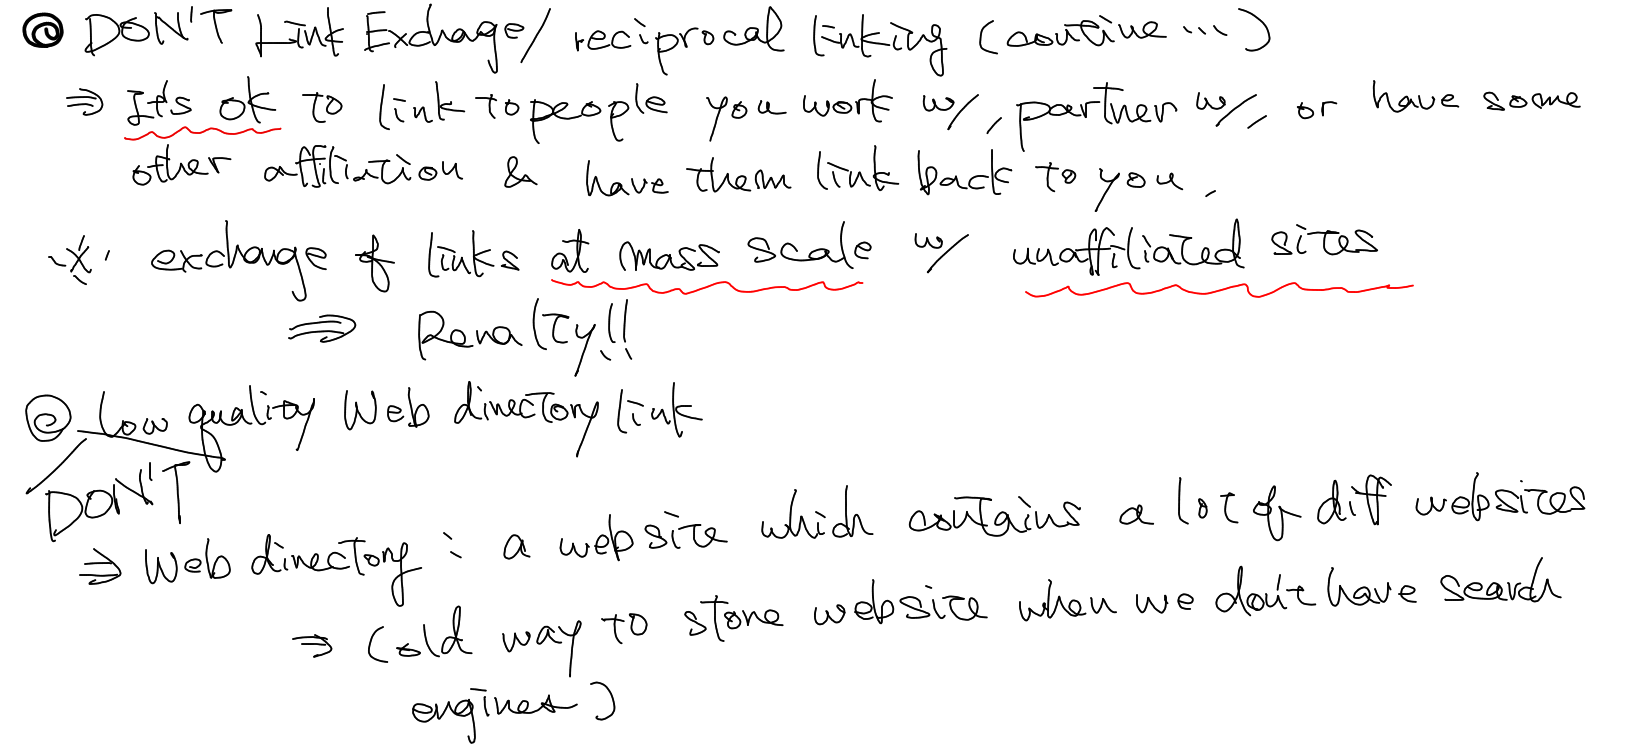 ◎ DON'T Link Exchage/ reciprocal linking (continue ...)
⇒ It's ok to link to people you work w/, partner w/, or have some
other affiliation & have them link back to you.
※ exchange of links at mass scale w/ unaffiliated sites
⇒ Penalty!!
◎ Low quality Web directory link
DON'T
⇒ Web directory : a website which contains a lot of diff websites
⇒ (old way to store website when we don't have search
engines)